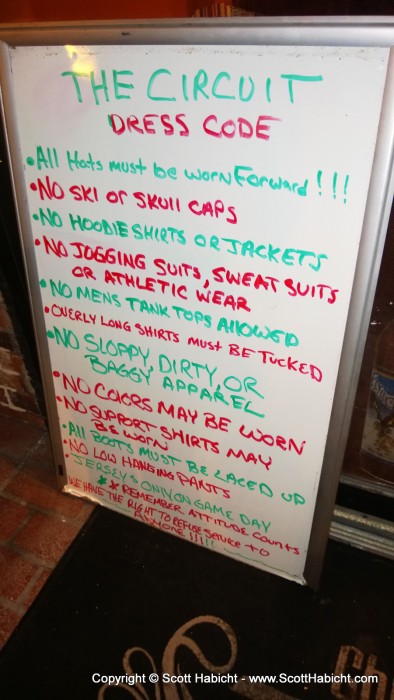 THE CIRCUIT
DRESS CODE
•All Hats must be worn Forward!!!
•NO SKI or SKULL CAPS
•NO HOODIE SHIRTS OR JACKETS
•NO JOGGING SUITS, SWEAT SUITS
OR ATHLETIC WEAR
•NO MENS TANK TOPS AllOWED
•OVERLY LONG SHIRTS must BE TUCKED
•NO SLOPPY, DIRTY, OR
BAGGY APPAREL
•NO COLORS MAY BE WORN
•NO SUPPORT SHIRTS MAY
BE WORN
•All BOOTS MUST BE LACED UP
•NO LOW HANGING PANTS
•JERSEYS ONLY ON GAME DAY
* * REMEMBER ATTITUDE COUNTS
WE HAVE THE RIGHT TO REFUSE SERVICE to
ANYONE!!!!!
Copyright © Scott Habicht - www.ScottHabicht.com